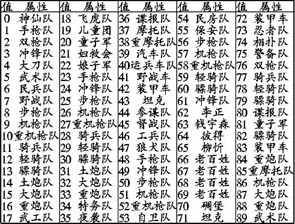 值 属性 值 属性 值 属性 值 属性 值 属性
0 神仙队 18 飞虎队 36 谍报队 54 民房队 72 装甲车
1 手枪队 19 儿童团 37 摩托队 55 保安队 73 忍者队
2 双枪队 20 童子军 38 重摩托队 56 步枪队 74 相扑队
3 冲锋队 21 妇救会 39 汽车队 57 机枪队 75 警备队
4 大刀队 22 娘子军 40 运兵车队 58 重机枪队 76 步枪队
5 武术队 23 手枪队 41 野战车 59 轻骑队 77 轻骑队
6 民兵队 24 冲锋队 42 装甲车 60 骠骑队 78 骠骑队
7 野战队 25 步枪队 43 坦克 61 冲锋队 79 骠骑队
8 步枪队 26 机枪队 44 参谋队 62 李正 80 谍报队
9 机枪队 27 重机枪队 45 野炮队 63 钱宇森 81 童子军
10 重机枪队 28 骑兵队 46 工兵队 64 彼得 82 童子军
11 骑兵队 29 轻骑队 47 狼犬队 65 柳忻 83 装甲车
12 轻骑队 30 骠骑队 48 手枪队 66 老百姓 84 重炮队
13 骠骑队 31 土炮队 49 冲锋队 67 老百姓 85 重摩托队
14 土炮队 32 大炮队 50 步枪队 68 老百姓 86 机枪队
15 大炮队 33 重炮队 51 机枪队 69 老百姓 87 火炮队
16 重炮队 34 特务队 52 重机枪队 70 碉堡 88 重炮队
17 武工队 35 夜袭队 53 自卫队 71 坦克 89 武术队